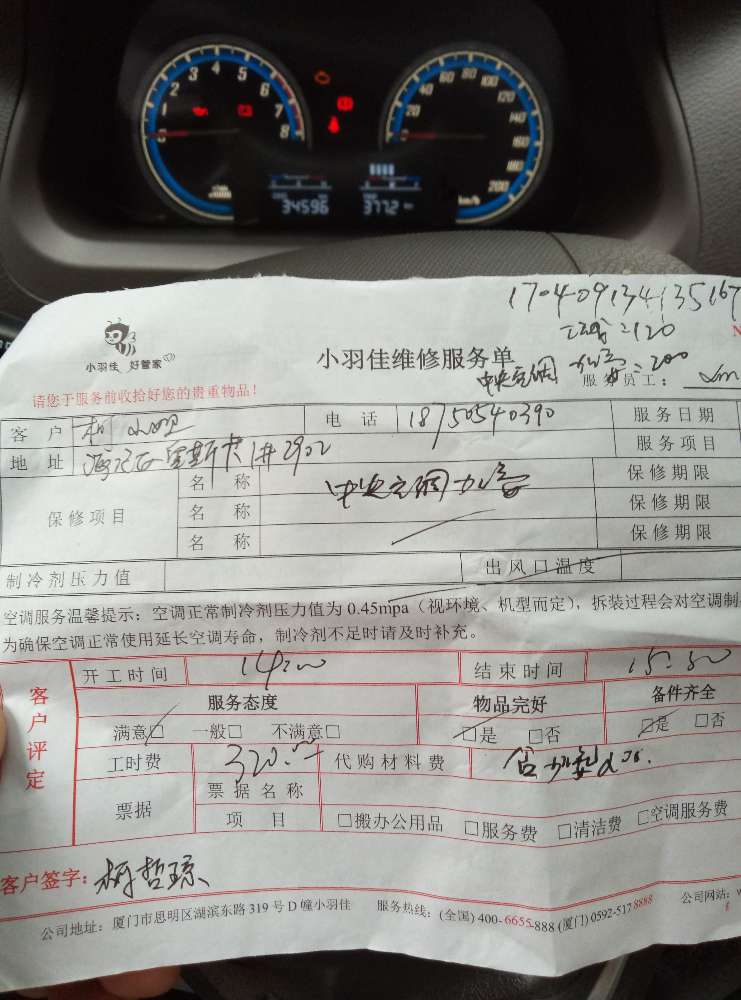 1 2 3 4 5 6 7 8
20 40 60 80 100 120 140 160 180 200
km/h
34596 377.2
小羽佳 好管家
170409134135167
=120
小羽佳维修服务单
中央空调 加高=200
请您于服务前收拾好您的贵重物品！
服务员工：
客户 柯 电话 18750540390 服务日期
地址 2902 服务项目
保修项目 名称 中央空调加高 保修期限
名称 保修期限
名称 保修期限
制冷剂压力值 出风口温度
空调服务温馨提示：空调正常制冷剂压力值为 0.45mpa（视环境、机型而定），拆装过程会对空调制
为确保空调正常使用延长空调寿命，制冷剂不足时请及时补充。
客户评定
开工时间 14:00 结束时间 15:50
服务态度 物品完好 备件齐全
满意□ 一般□ 不满意□ □是 □否 □是 □否
工时费 320.00 代购材料费 含
票据 票据名称
项目 □搬办公用品 □服务费 □清洁费 □空调服务费
客户签字：柯哲琼
公司地址：厦门市思明区湖滨东路 319 号 D 幢小羽佳 服务热线：(全国) 400-6655-888 (厦门) 0592-517 8888 公司网站：w